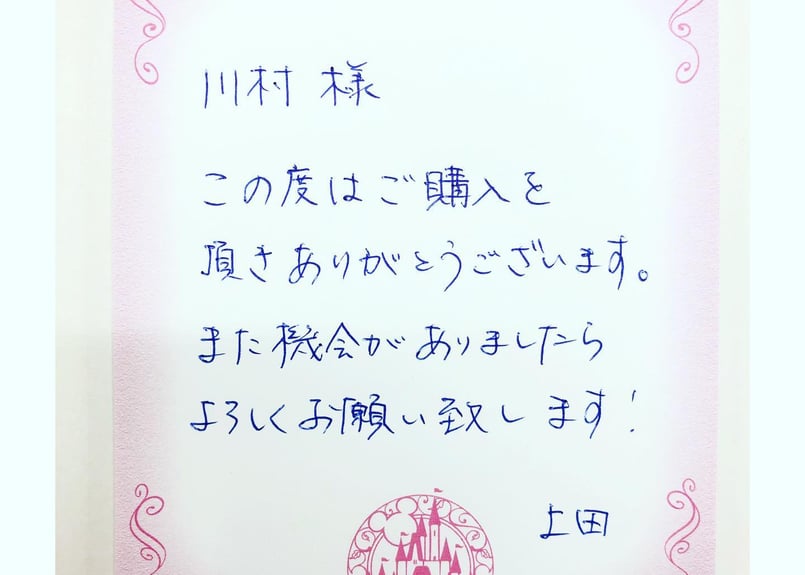 川村 様
この度はご購入を
頂きありがとうございます。
また機会がありましたら
よろしくお願い致します!
上田